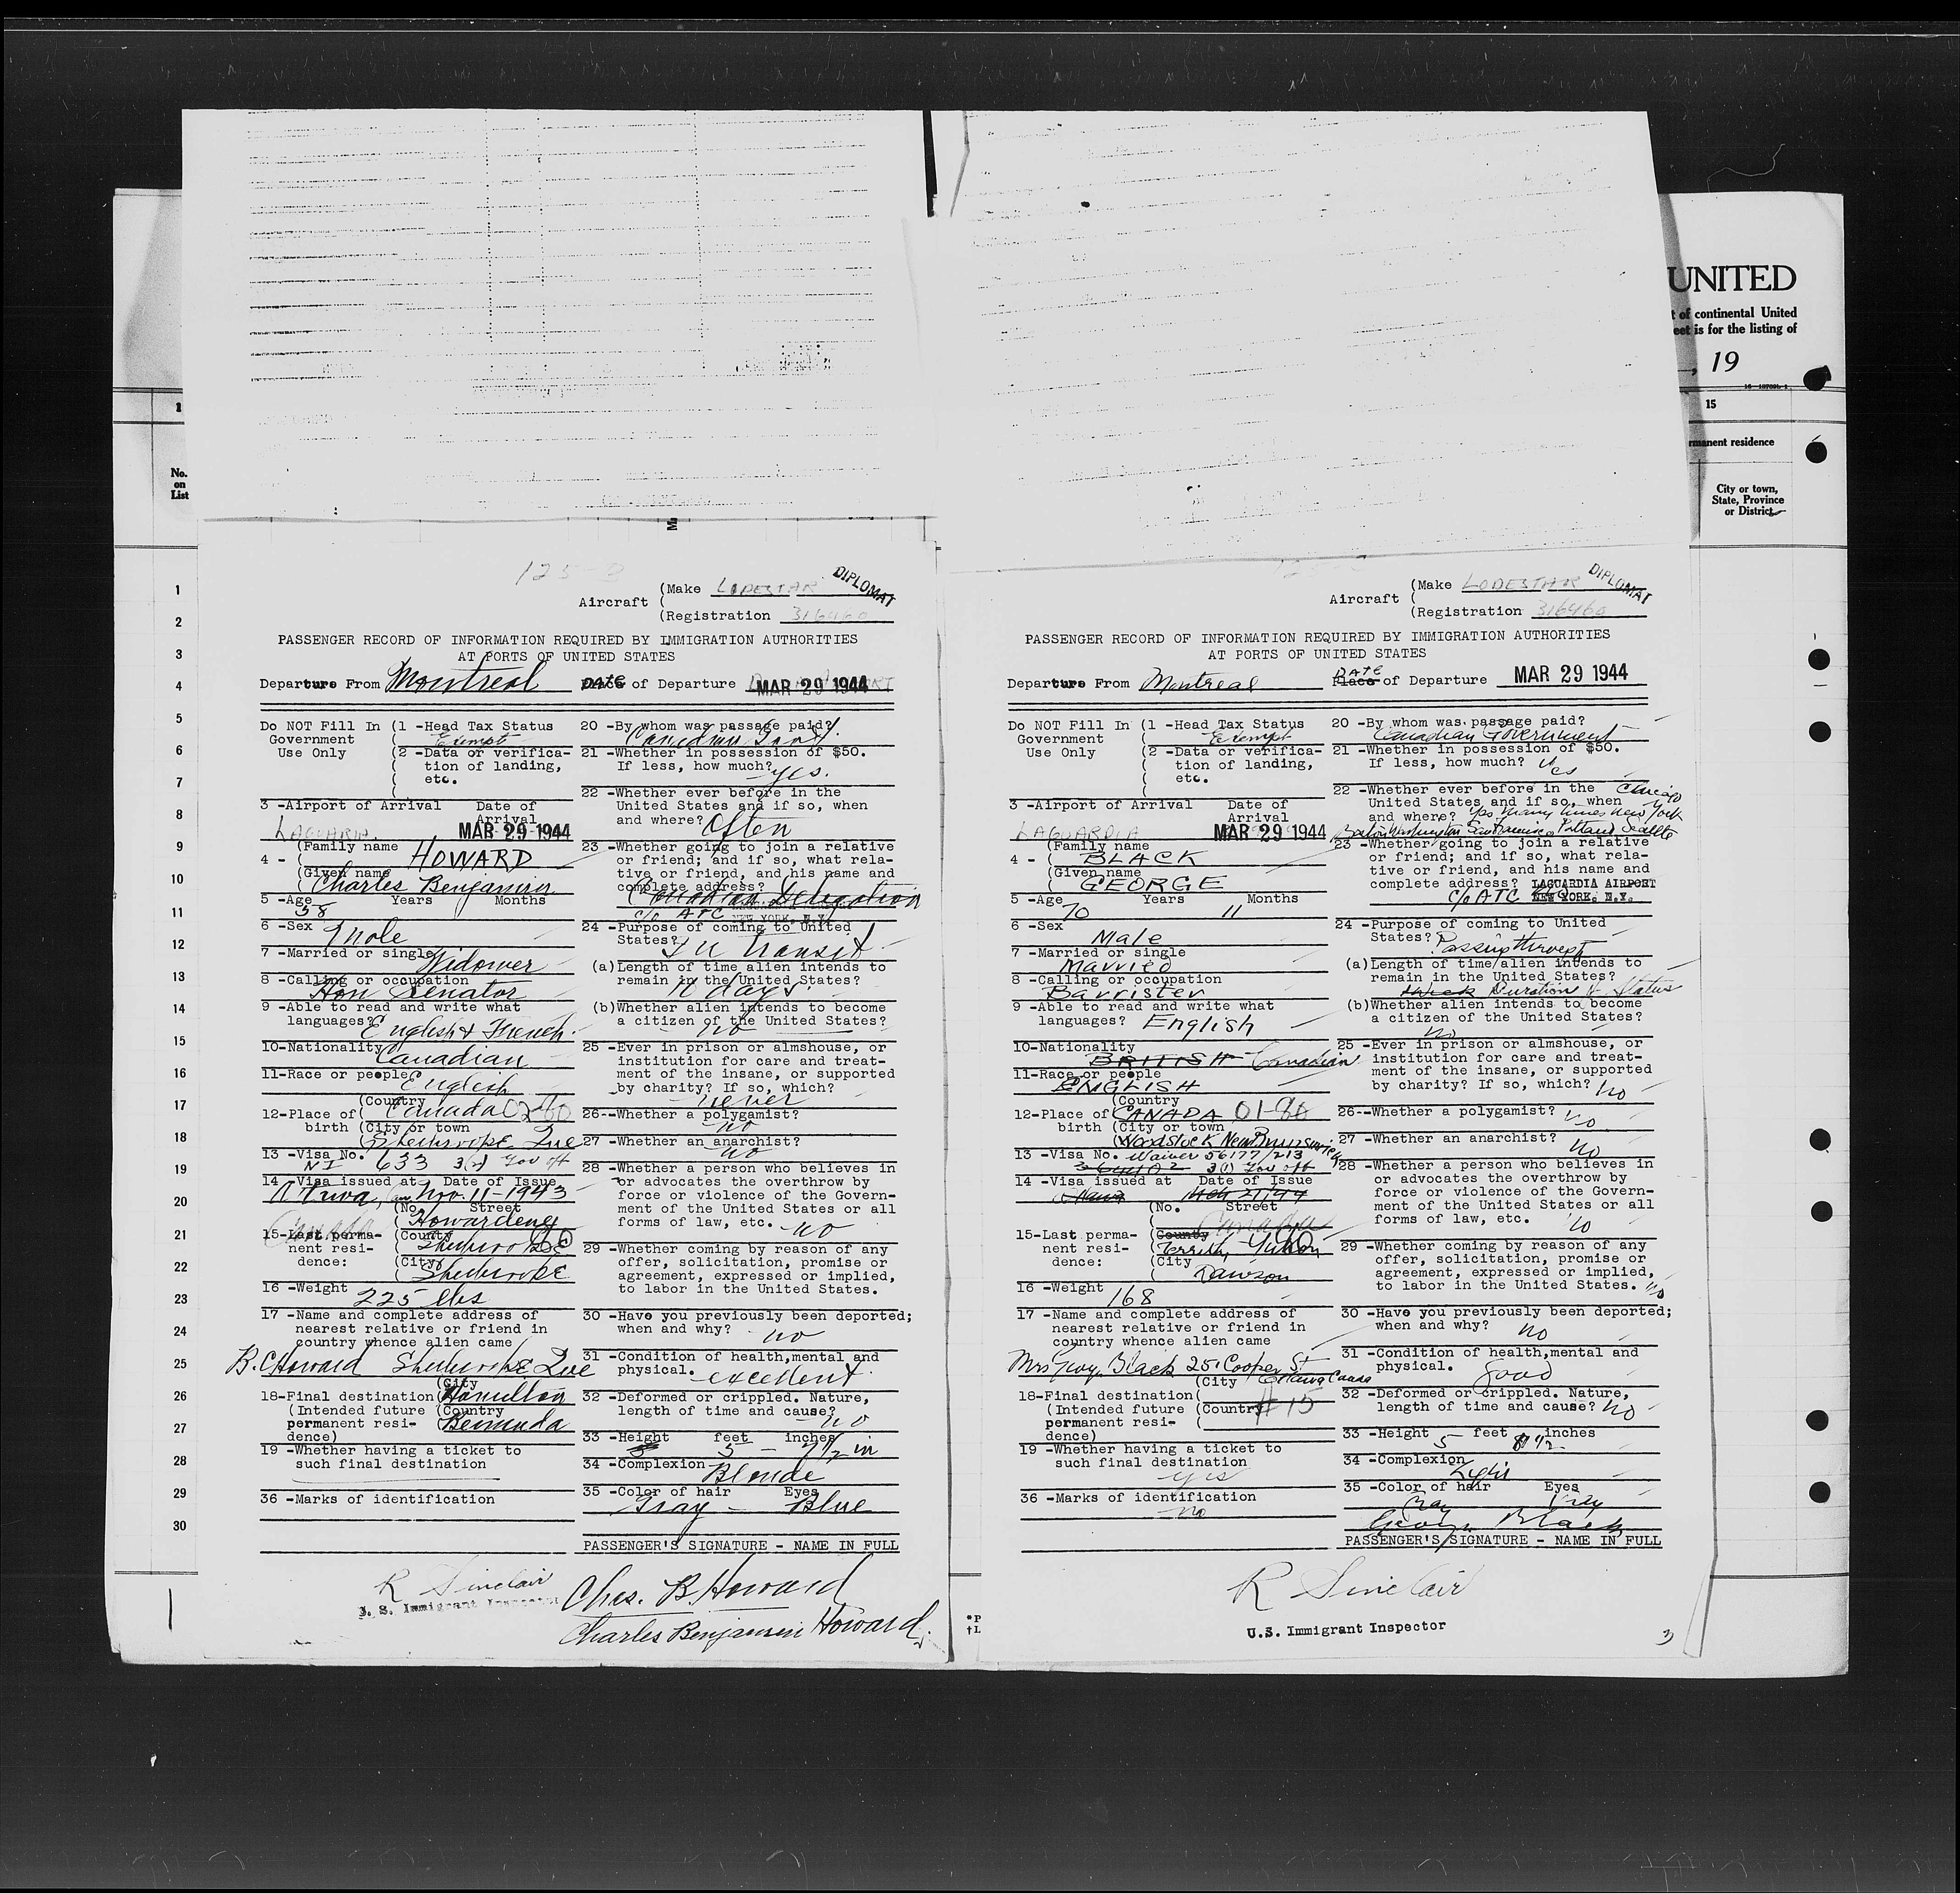 UNITED
t of continental United
eet is for the listing of
, 19
1
15
rmanent residence
No.
on
List
City or town,
State, Province
or District
1
2
3
4
5
6
7
8
9
10
11
12
13
14
15
16
17
18
19
20
21
22
23
24
25
26
27
28
29
30
125-B
DIPLOMAT
Aircraft (Make LODESTAR
(Registration 316460
PASSENGER RECORD OF INFORMATION REQUIRED BY IMMIGRATION AUTHORITIES
AT PORTS OF UNITED STATES
Departure From Montreal DATE of Departure MAR 29 1944
Do NOT Fill In (1 -Head Tax Status
Government Exempt
Use Only (2 -Data or verifica-
tion of landing,
etc.
3 -Airport of Arrival Date of
Arrival
LAGUARDIA MAR 29 1944
4 - (Family name HOWARD
(Given name
Charles Benjamin
5 -Age Years Months
58
6 -Sex Male
7 -Married or single Widower
8 -Calling or occupation
Hon Senator
9 -Able to read and write what
languages? English & French
10-Nationality Canadian
11-Race or people English
12-Place of (Country Canada 02-80
birth (City or town
Sherbrooke Que
13 -Visa No. 633 3(1) Gov off
NI
14 -Visa issued at Date of Issue
Ottawa, Can Nov. 11-1943
(No. Street
Howardene
Canada
15-Last perma- (County Sherbrooke
nent resi- (City
dence: Sherbrooke
16 -Weight 225 lbs
17 -Name and complete address of
nearest relative or friend in
country whence alien came
B. C Howard Sherbrooke Que
18-Final destination (City Hamilton
(Intended future (Country
permanent resi- Bermuda
dence)
19 -Whether having a ticket to
such final destination
36 -Marks of identification
20 -By whom was passage paid?
Canadian Govt.
21 -Whether in possession of $50.
If less, how much? yes.
22 -Whether ever before in the
United States and if so, when
and where? Often
23 -Whether going to join a relative
or friend; and if so, what rela-
tive or friend, and his name and
complete address?
Canadian Delegation
c/o ATC NEW YORK, N.Y.
24 -Purpose of coming to United
States? In transit
(a)Length of time alien intends to
remain in the United States?
10 days
(b)Whether alien intends to become
a citizen of the United States?
no
25 -Ever in prison or almshouse, or
institution for care and treat-
ment of the insane, or supported
by charity? If so, which?
never
26--Whether a polygamist?
no
27 -Whether an anarchist?
no
28 -Whether a person who believes in
or advocates the overthrow by
force or violence of the Govern-
ment of the United States or all
forms of law, etc. no
29 -Whether coming by reason of any
offer, solicitation, promise or
agreement, expressed or implied,
to labor in the United States.
30 -Have you previously been deported;
when and why? no
31 -Condition of health,mental and
physical. excellent.
32 -Deformed or crippled. Nature,
length of time and cause? no
33 -Height feet inches
5 - 7 1/2 in
34 -Complexion Blonde
35 -Color of hair Eyes
Gray - Blue
PASSENGER'S SIGNATURE - NAME IN FULL
R Sinclair
U. S. Immigrant Inspector
Chas. B. Howard
Charles Benjamin Howard
DIPLOMAT
Aircraft (Make LODESTAR
(Registration 316460
PASSENGER RECORD OF INFORMATION REQUIRED BY IMMIGRATION AUTHORITIES
AT PORTS OF UNITED STATES
DATE
Departure From Montreal Place of Departure MAR 29 1944
Do NOT Fill In (1 -Head Tax Status
Government Exempt
Use Only (2 -Data or verifica-
tion of landing,
etc.
3 -Airport of Arrival Date of
Arrival
LAGUARDIA MAR 29 1944
4 - (Family name
BLACK
(Given name
GEORGE
5 -Age Years Months
70 11
6 -Sex Male
7 -Married or single
Married
8 -Calling or occupation
Barrister
9 -Able to read and write what
languages? English
10-Nationality
BRITISH Canadian
11-Race or people
ENGLISH
12-Place of (Country CANADA 01-80
birth (City or town
Woodstock New Brunswick
13 -Visa No. Waiver 56177/213
3(1) Gov off
14 -Visa issued at Date of Issue
Ottawa Mch 21/44
(No. Street
Canada
15-Last perma- (County
nent resi- Territy Yukon
dence: (City
Dawson
16 -Weight 168
17 -Name and complete address of
nearest relative or friend in
country whence alien came
Mrs Geo. Black 251 Cooper St
Ottawa Canada
18-Final destination (City
(Intended future (Country #15
permanent resi-
dence)
19 -Whether having a ticket to
such final destination
yes
36 -Marks of identification
no
20 -By whom was passage paid?
Canadian Government
21 -Whether in possession of $50.
If less, how much? Yes
22 -Whether ever before in the Chicago
United States and if so, when
and where? Yes many times New York
Boston Washington San Francisco Portland Seattle
23 -Whether going to join a relative
or friend; and if so, what rela-
tive or friend, and his name and
complete address? LAGUARDIA AIRPORT
c/o ATC NEW YORK, N.Y.
24 -Purpose of coming to United
States? Passing through
(a)Length of time alien intends to
remain in the United States?
1 week Duration of Status
(b)Whether alien intends to become
a citizen of the United States?
no
25 -Ever in prison or almshouse, or
institution for care and treat-
ment of the insane, or supported
by charity? If so, which? no
26--Whether a polygamist? no
27 -Whether an anarchist? no
28 -Whether a person who believes in
or advocates the overthrow by
force or violence of the Govern-
ment of the United States or all
forms of law, etc. no
29 -Whether coming by reason of any
offer, solicitation, promise or
agreement, expressed or implied,
to labor in the United States. no
30 -Have you previously been deported;
when and why? no
31 -Condition of health,mental and
physical. Good
32 -Deformed or crippled. Nature,
length of time and cause? no
33 -Height 5 feet 8 1/2 inches
34 -Complexion
Light
35 -Color of hair Eyes
Gray Gray
George Black
PASSENGER'S SIGNATURE - NAME IN FULL
R Sinclair
U.S. Immigrant Inspector
3
*P
†L